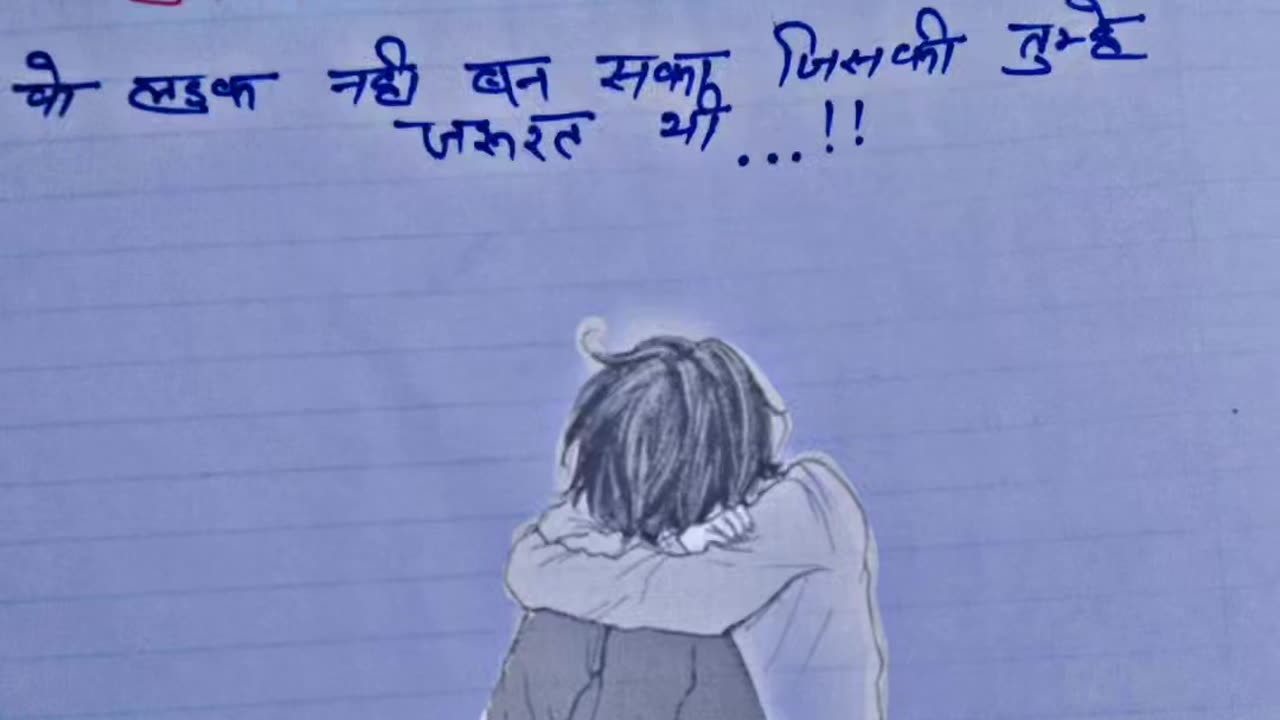 वो लडक नही बन सका, जिसकी तुम्हे
जरूरत थी...!!